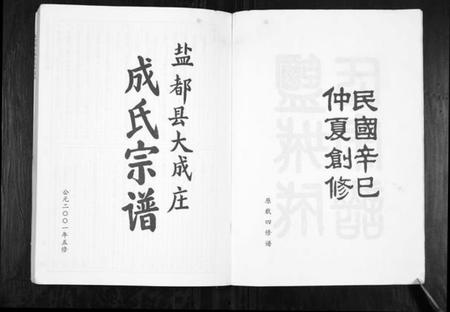 民國辛巳
仲夏創修
原載四修譜
盐都县大成庄
成氏宗谱
公元二〇〇一年五修